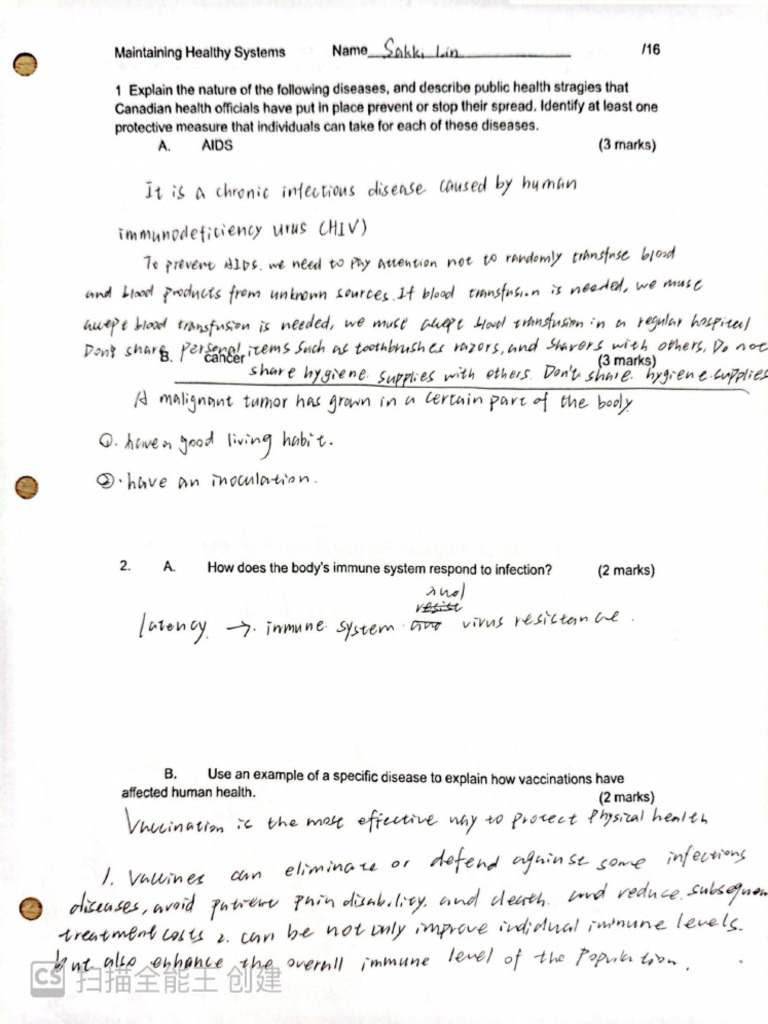 Maintaining Healthy Systems Name Sakki Lin /16
1 Explain the nature of the following diseases, and describe public health stragies that
Canadian health officials have put in place prevent or stop their spread. Identify at least one
protective measure that individuals can take for each of these diseases.
A. AIDS (3 marks)
It is a chronic infectious disease caused by human
immunodeficiency urus (HIV)
To prevent AIDs. we need to pay attention not to randomly transfuse blood
and blood products from unknown sources. If blood transfusion is needed, we must
accept blood transfusion is needed, we must accept blood transfusion in a regular hospital
Don't share personal items such as toothbrushes razors, and shavors with others. Do not
B. cancer (3 marks)
share hygiene supplies with others. Don't share hygiene supplies
A malignant tumor has grown in a certain part of the body.
①. have a good living habit.
②. have an inoculation.
2. A. How does the body's immune system respond to infection? (2 marks)
and
resist
latency → immune system and virus resistance.
B. Use an example of a specific disease to explain how vaccinations have
affected human health. (2 marks)
Vaccination is the most effective way to protect physical health
1. Vaccines can eliminate or defend against some infections
diseases, avoid patient pain disability. and death. and reduce. subsequen
treatment costs 2. can be not only improve individual immune levels.
but also enhance the overall immune level of the population.
CS 扫描全能王 创建